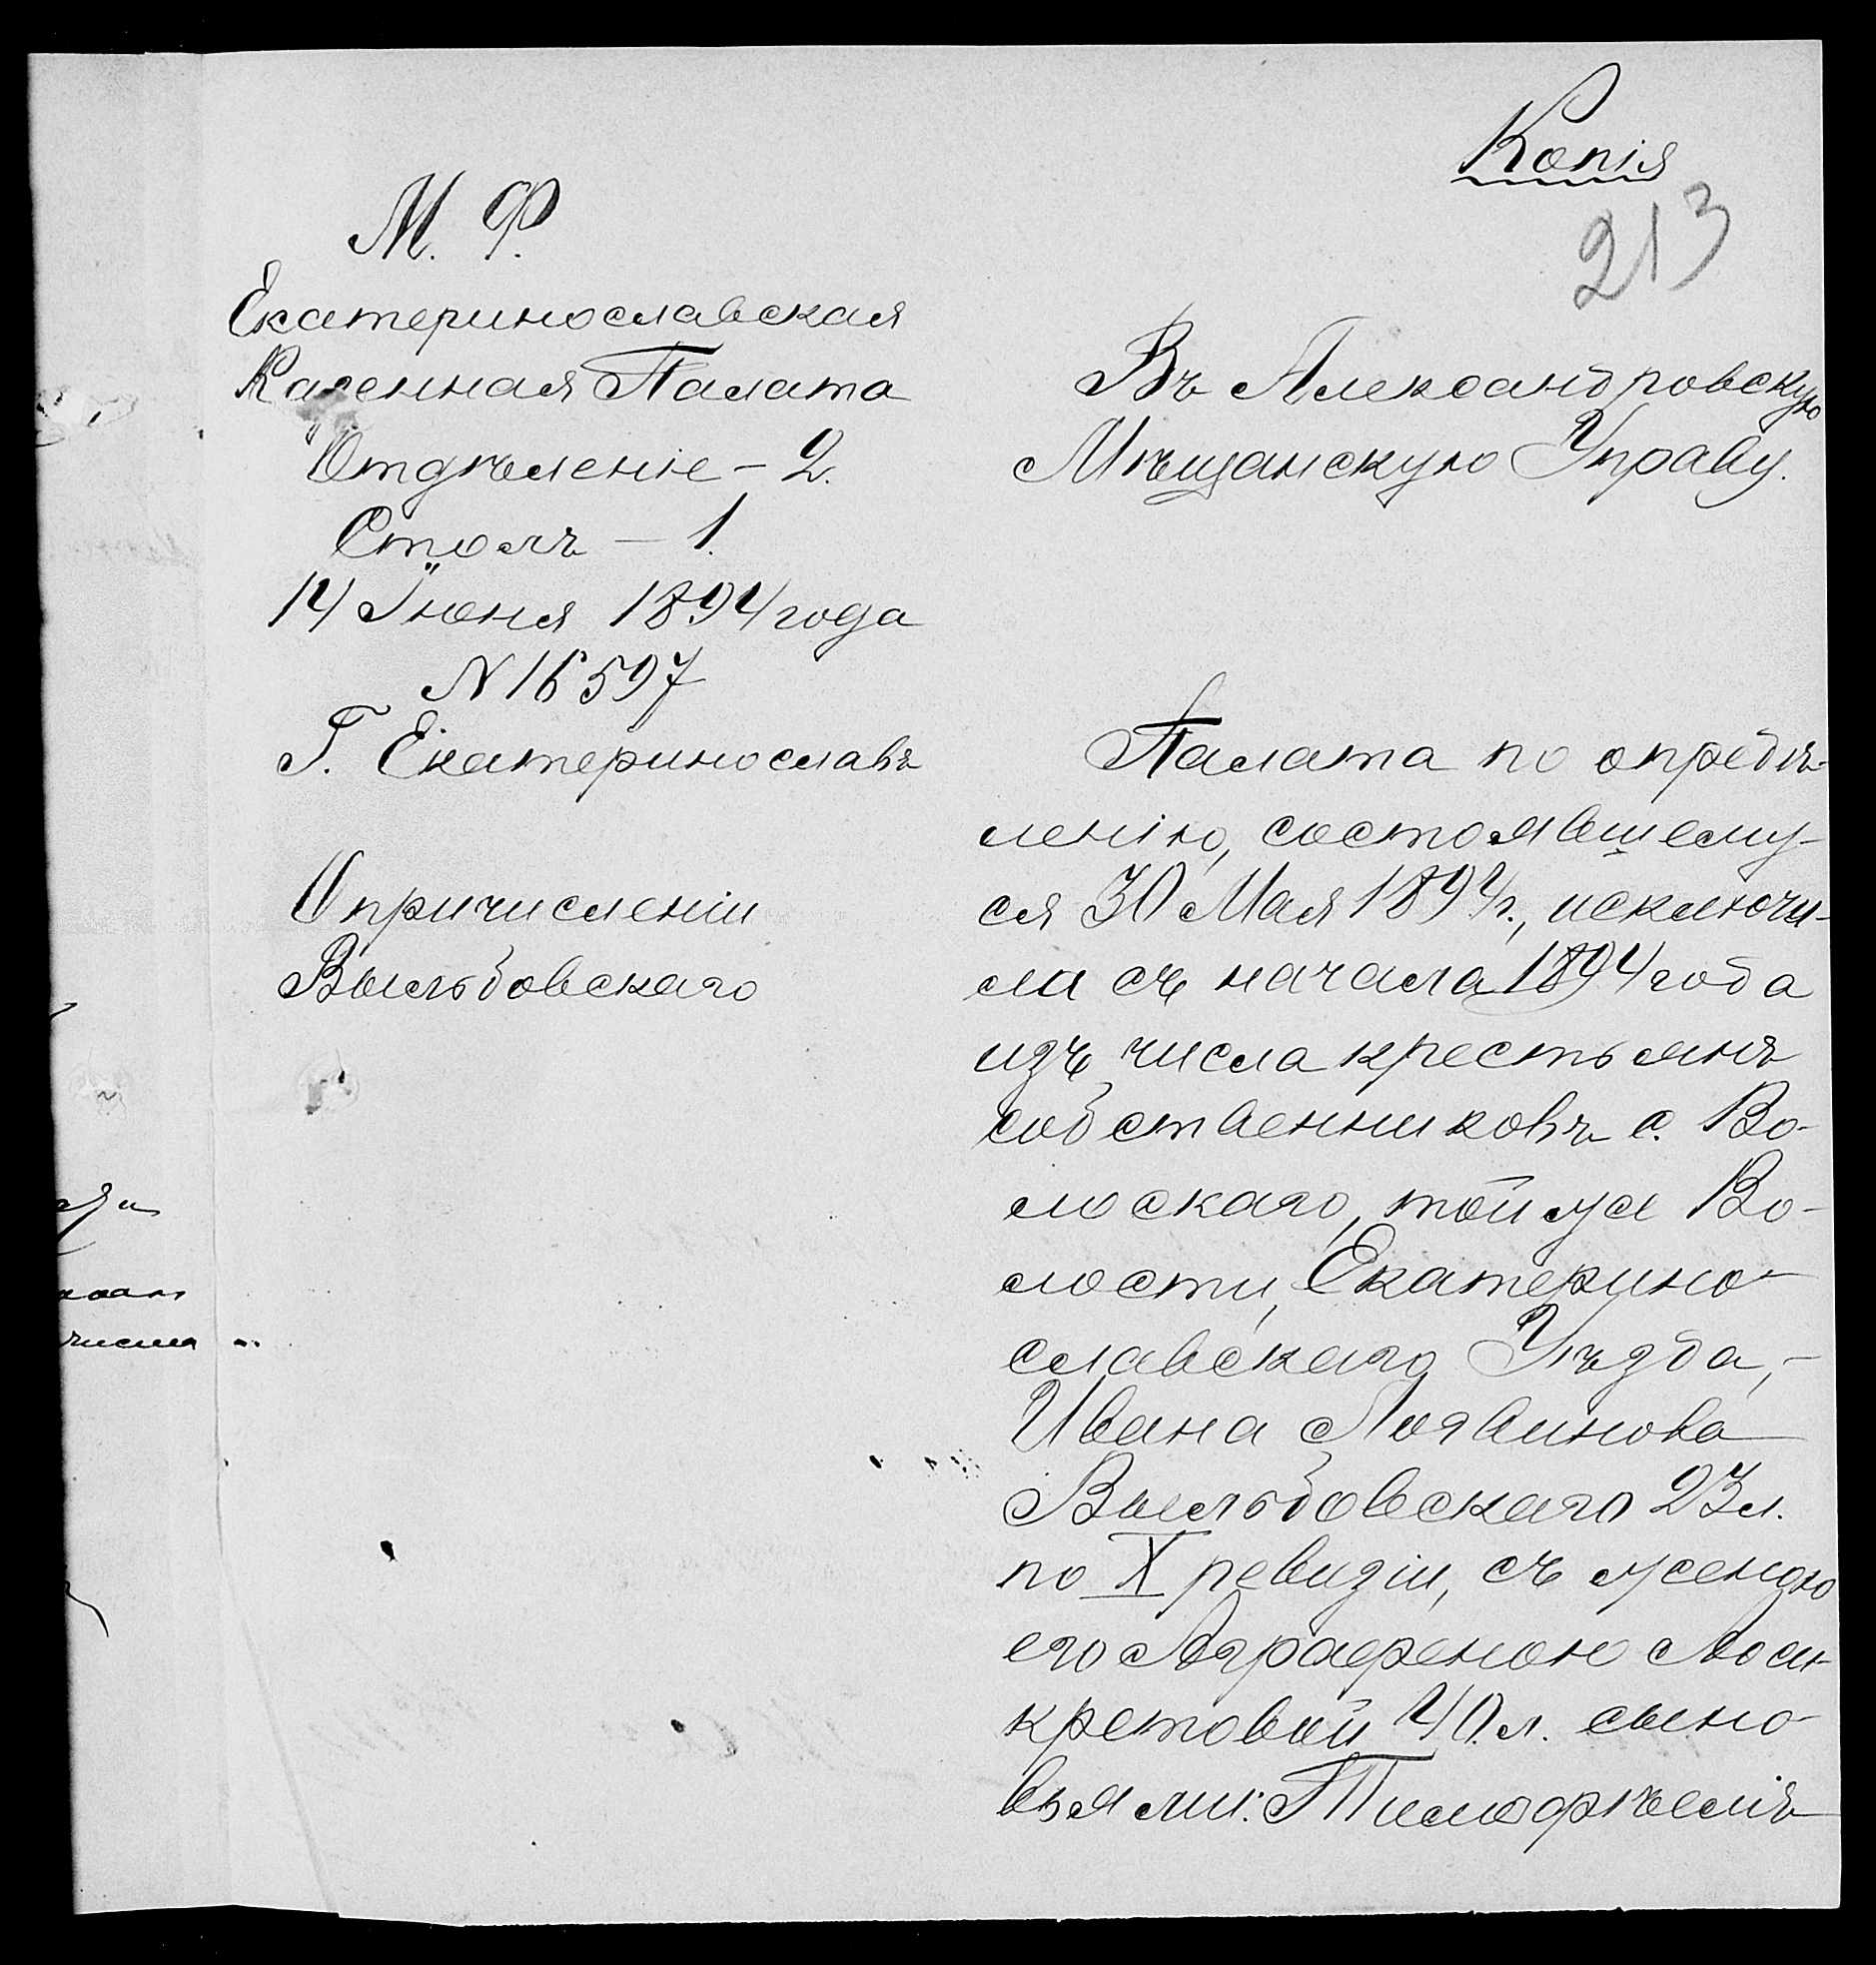 Копія
213
М. Ф.
Екатеринославская
Казенная Палата
Отдѣленіе – 2.
Столъ – 1.
14 Іюня 1894 года
N 16597
Г. Екатеринославъ
О причисленіи
Выльбовскаго
Въ Александровскую
Мѣщанскую Управу.
Палата по опредѣ-
ленію, состоявшему-
ся 30 Мая 1894 г., исключи-
ла съ начала 1894 года
изъ числа крестьянъ
собственниковъ с. Во-
лоскаго, той же Во-
лости, Екатерино-
славскаго Уѣзда, –
Ивана Логвинова
Выльбовскаго 23 л.
по X ревизіи, съ женою
его Аграфеною
кретовой 40 л. сыно-
вьями: Тимофѣемъ
числа